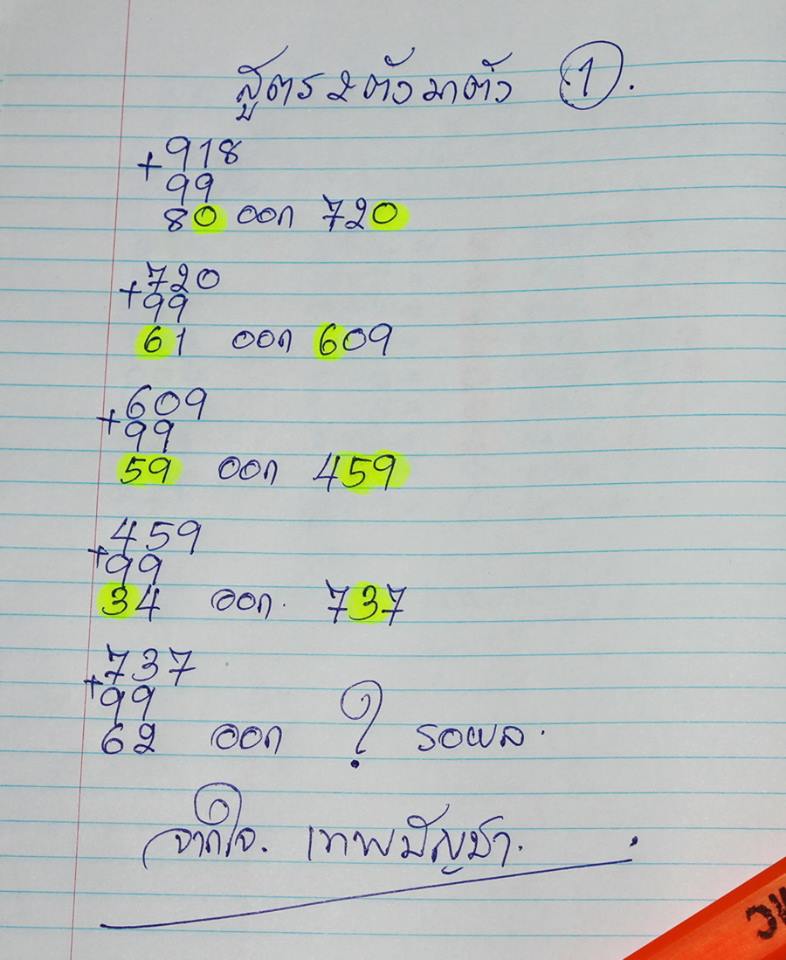 สูตร 2 ตัว มาตัว 1.
+918
99
80 ออก 720
+720
99
61 ออก 609
+609
99
59 ออก 459
+459
99
34 ออก. 737
+737
99
62 ออก ? รอผล.
จากใจ. เทพบัญชา.